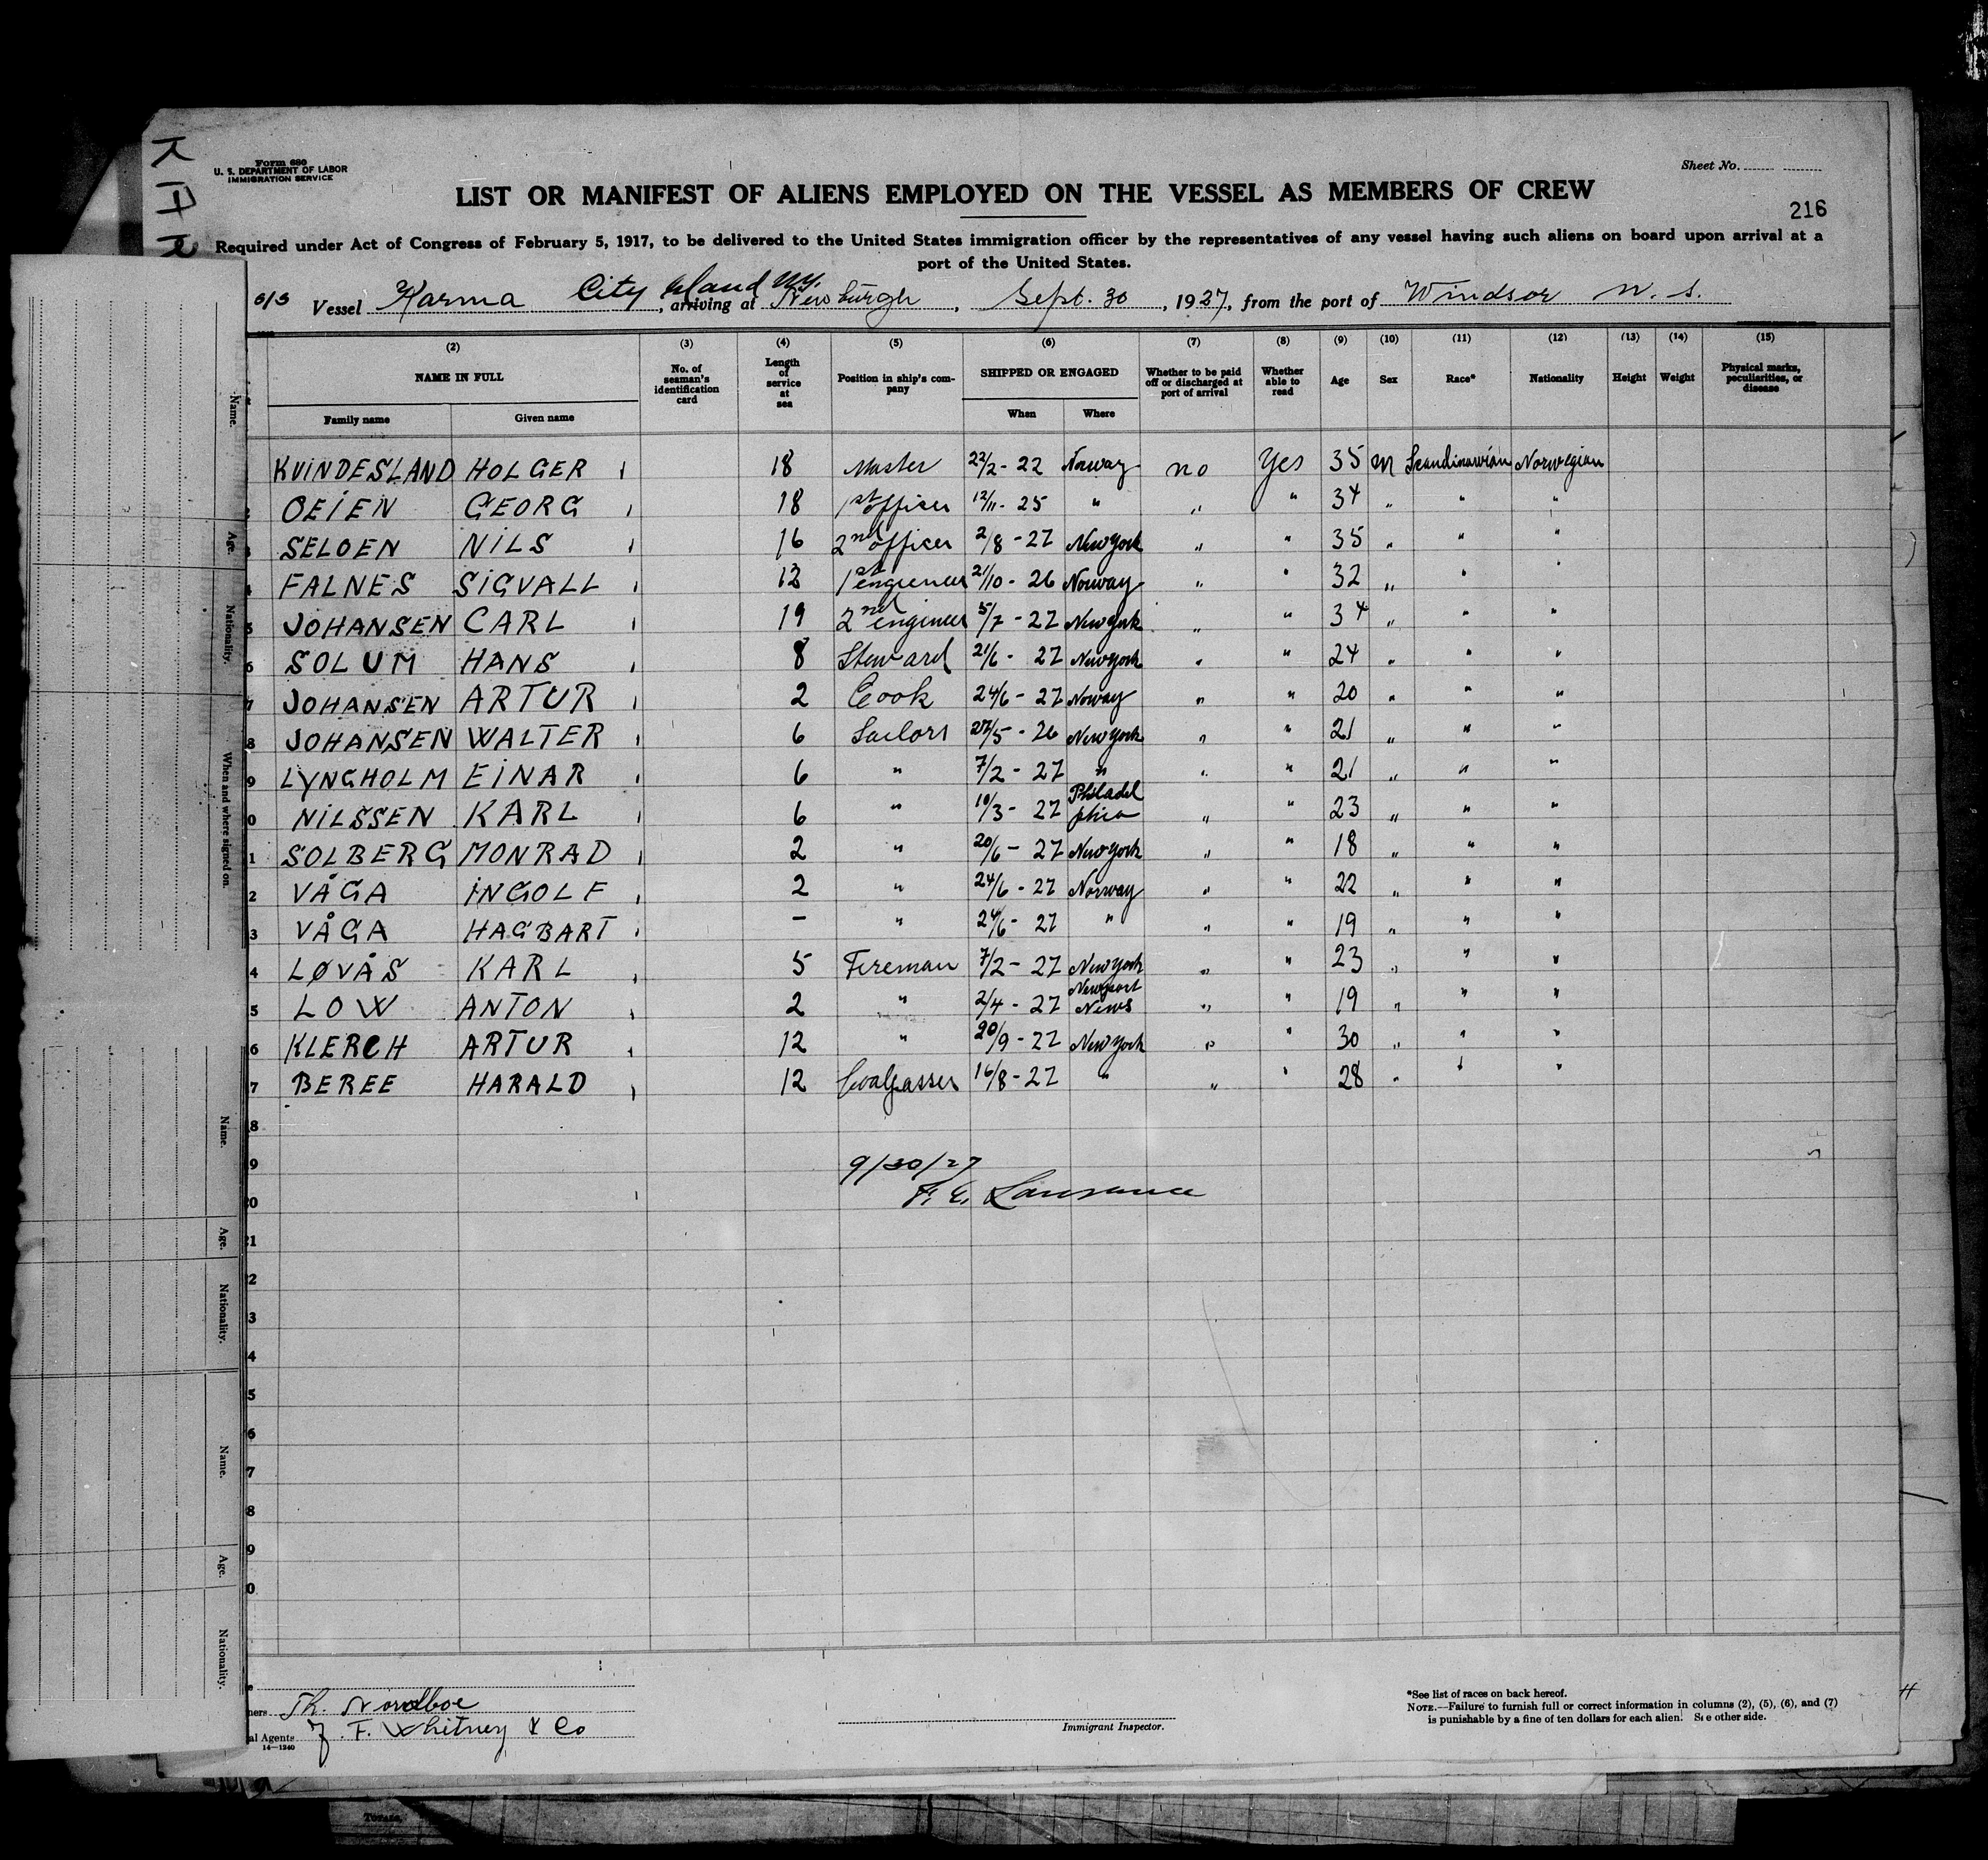 KAR
Form 680
U. S. DEPARTMENT OF LABOR
IMMIGRATION SERVICE
Sheet No.
LIST OR MANIFEST OF ALIENS EMPLOYED ON THE VESSEL AS MEMBERS OF CREW
216
Required under Act of Congress of February 5, 1917, to be delivered to the United States immigration officer by the representatives of any vessel having such aliens on board upon arrival at a
port of the United States.
City Island NY.
S/S Vessel Karma, arriving at Newburgh, Sept. 30, 1927, from the port of Windsor N. S.
(2) (3) (4) (5) (6) (7) (8) (9) (10) (11) (12) (13) (14) (15)
NAME IN FULL No. of seaman's identification card Length of service at sea Position in ship's company SHIPPED OR ENGAGED Whether to be paid off or discharged at port of arrival Whether able to read Age Sex Race* Nationality Height Weight Physical marks, peculiarities, or disease
Family name Given name When Where
KVINDESLAND HOLGER 18 Master 22/2 - 22 Norway no Yes 35 m Scandinavian Norwegian
OEIEN GEORG 18 1st officer 12/11 - 25 " " " 34 " " "
SELOEN NILS 16 2nd officer 2/8 - 27 New York " " 35 " " "
4 FALNES SIGVALL 13 1st engineer 21/10 - 26 Norway " " 32 " " "
5 JOHANSEN CARL 19 2nd engineer 5/7 - 27 New York " " 34 " " "
6 SOLUM HANS 8 Steward 21/6 - 27 New York " " 24 " " "
7 JOHANSEN ARTUR 2 Cook 24/6 - 27 Norway " " 20 " " "
8 JOHANSEN WALTER 6 Sailors 27/5 - 26 New York " " 21 " " "
9 LYNGHOLM EINAR 6 " 7/2 - 27 " " " 21 " " "
0 NILSSEN KARL 6 " 10/3 - 27 Philadelphia " " 23 " " "
1 SOLBERG MONRAD 2 " 20/6 - 27 New York " " 18 " " "
2 VÅGA INGOLF 2 " 24/6 - 27 Norway " " 22 " " "
3 VÅGA HAGBART — " 24/6 - 27 " " " 19 " " "
4 LØVÅS KARL 5 Fireman 7/2 - 27 New York " " 23 " " "
5 LOW ANTON 2 " 2/4 - 27 Newport News " " 19 " " "
6 KLERCH ARTUR 12 " 20/9 - 27 New York " " 30 " " "
7 BEREE HARALD 12 Coalpasser 16/8 - 27 " " " 28 " " "
8
9
9/30/27
F. E. Lawrence
20
21
2
3
4
5
6
7
8
9
0
Th. Nordboe
al Agents J. F. Whitney & Co
14—1240
Immigrant Inspector.
*See list of races on back hereof.
NOTE.—Failure to furnish full or correct information in columns (2), (5), (6), and (7)
is punishable by a fine of ten dollars for each alien. See other side.
Name.
Age.
Nationality.
When and where signed on.
Name.
Age.
Nationality.
Name.
Age.
Nationality.